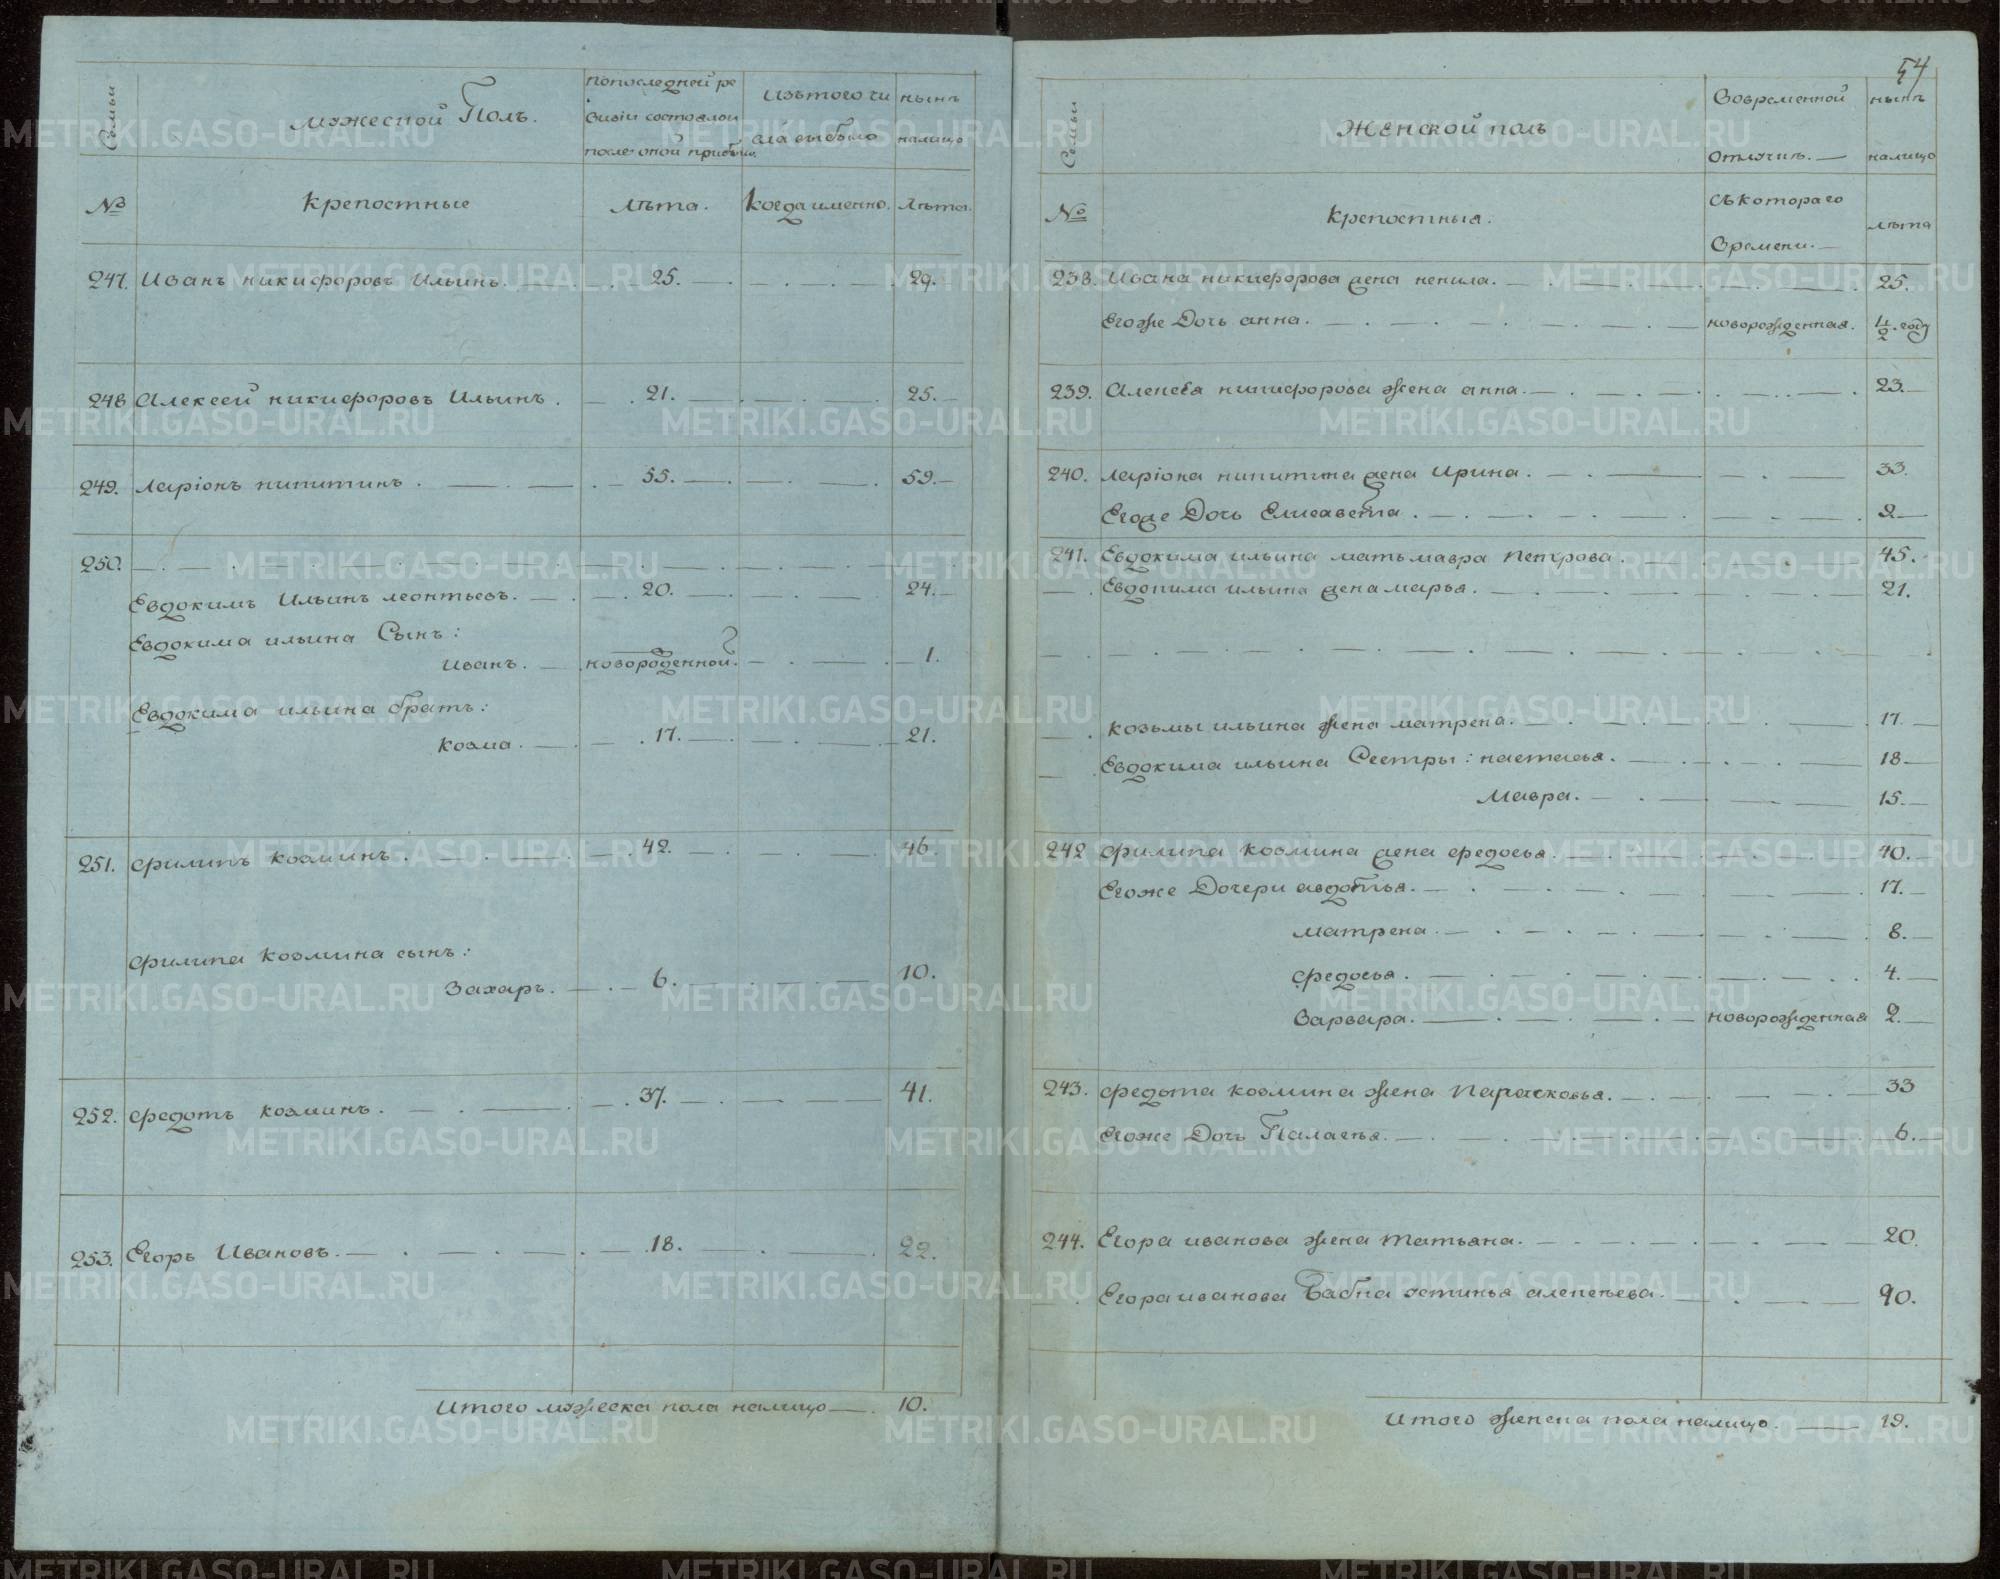 54
Семьи
мужеской Полъ.
попоследней ре
визiи состояло и
после оной прибыло.
изъ того чи
сла выбыло
нынъ
налицо
№
крепостные
лѣта.
Когда именно.
лѣта.
247. Иванъ никифоровъ Ильинъ. 25. 29.
248 Алексей никифоровъ Ильинъ. 21. 25.
249. ларiонъ никитинъ. 55. 59.
250.
Евдокимъ Ильинъ леонтьевъ. 20. 24.
Евдокима ильина Сынъ:
иванъ. новорожденной. 1.
Евдокима ильина братъ:
козма. 17. 21.
251. филипъ козминъ. 42. 46
филипа козмина сынъ:
Захаръ. 6. 10.
252. федотъ козминъ. 37. 41.
253. Егоръ Ивановъ. 18. 22.
Итого мужеска пола налицо 10.
Семьи
Женской полъ
Вовременной
Отлучкъ.
нынъ
налицо
№
крепостныя.
Съ котораго
Времени.
лѣта
238. Ивана никифорова жена ненила. 25.
Егоже Дочь анна. новорожденная. 1/2 году
239. Алексея никифорова жена анна. 23.
240. ларiона никитина жена Ирина. 33.
Егоже Дочь Елисавета. 9
241. Евдокима ильина мать мавра петрова. 45.
Евдокима ильина жена марья. 21.
козьмы ильина жена матрена. 17.
Евдокима ильина Сестры: настасья. 18
Мавра. 15.
242 филипа козмина жена федосья. 40.
Егоже Дочери авдотья. 17.
матрена. 8.
федосья. 4.
Варвара. новорожденная 2.
243. федота козмина жена Парасковья. 33
Егоже Дочь Палагея. 6.
244. Егора иванова жена татьяна. 20.
Егора иванова Бабка устинья алексѣева. 90.
Итого женска пола налицо. 19.
METRIKI.GASO-URAL.RU